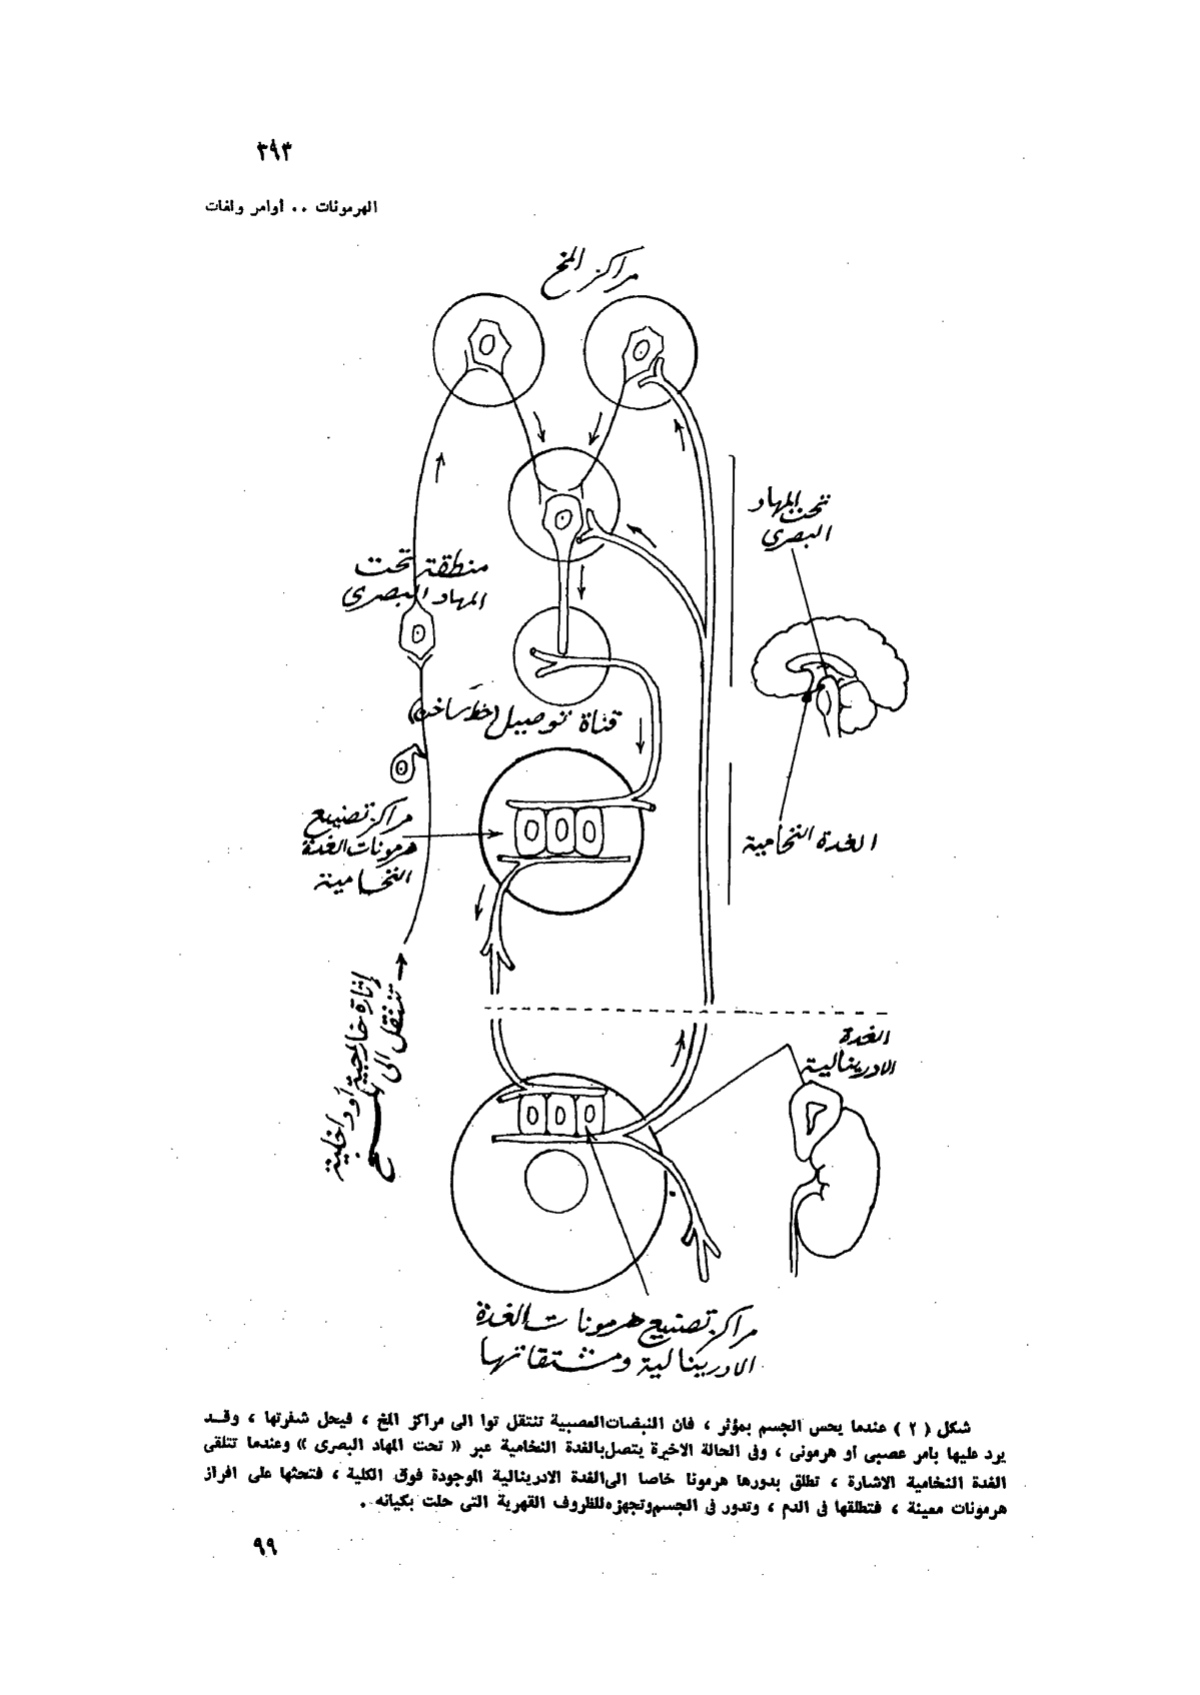 ٣٩٣
الهرمونات .. أوامر ولغات
مراكز المخ
تحت المهاد
البصرى
منطقة تحت
المهاد البصرى
قناة توصيل (خط ساخن)
مراكز تصنيع
هرمونات الغدة
النخامية
الغدة النخامية
إثارة خارجية أو داخلية
تنتقل الى المخ
الغدة
الادرينالية
مراكز تصنيع هرمونات الغدة
الادرينالية ومشتقاتها
شكل ( ٢ ) عندما يحس الجسم بمؤثر ، فان النبضات العصبية تنتقل توا الى مراكز المخ ، فيحل شفرتها ، وقد
يرد عليها بامر عصبى او هرمونى ، وفى الحالة الاخيرة يتصل بالغدة النخامية عبر « تحت المهاد البصرى » وعندما تتلقى
الغدة النخامية الاشارة ، تطلق بدورها هرمونا خاصا الى الغدة الادرينالية الموجودة فوق الكلية ، فتحثها على افراز
هرمونات معينة ، فتطلقها فى الدم ، وتدور فى الجسم وتجهزه للظروف القهرية التى حلت بكيانه .
٩٩